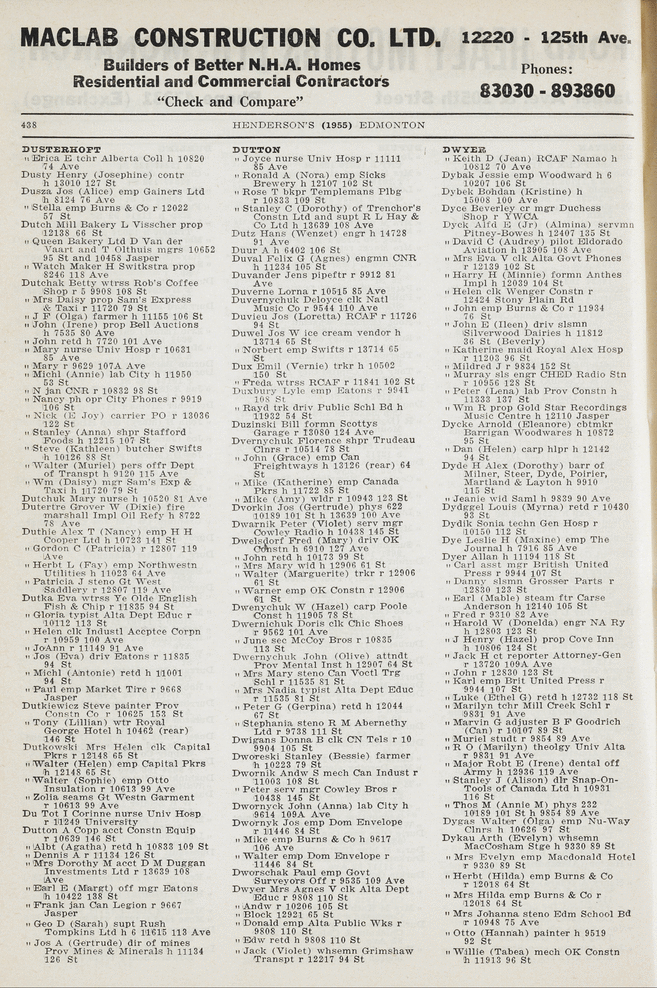 MACLAB CONSTRUCTION CO. LTD. 12220 - 125th Ave.
Builders of Better N.H.A. Homes
Residential and Commercial Contractors
"Check and Compare"
Phones:
83030 - 893860
438 HENDERSON'S (1955) EDMONTON
DUSTERHOFT
" Erica E tchr Alberta Coll h 10820
74 Ave
Dusty Henry (Josephine) contr
h 13010 127 St
Dusza Jos (Alice) emp Gainers Ltd
h 8124 76 Ave
" Stella emp Burns & Co r 12022
57 St
Dutch Mill Bakery L Visscher prop
12138 66 St
" Queen Bakery Ltd D Van der
Vaart and T Olthuis mgrs 10652
95 St and 10458 Jasper
" Watch Maker H Switkstra prop
8246 118 Ave
Dutchak Betty wtrss Rob's Coffee
Shop r 5 9908 108 St
" Mrs Daisy prop Sam's Express
& Taxi r 11720 79 St
" J F (Olga) farmer h 11155 106 St
" John (Irene) prop Bell Auctions
h 7535 80 Ave
" John retd h 7720 101 Ave
" Mary nurse Univ Hosp r 10631
85 Ave
" Mary r 9629 107A Ave
" Michl (Annie) lab City h 11950
53 St
" N jan CNR r 10832 98 St
" Nancy ph opr City Phones r 9919
106 St
" Nick (E Joy) carrier PO r 13036
122 St
" Stanley (Anna) shpr Stafford
Foods h 12215 107 St
" Steve (Kathleen) butcher Swifts
h 10126 88 St
" Walter (Muriel) pers offr Dept
of Transpt h 9120 115 Ave
" Wm (Daisy) mgr Sam's Exp &
Taxi h 11720 79 St
Dutchuk Mary nurse h 10520 81 Ave
Dutertre Grover W (Dixie) fire
marshall Impl Oil Refy h 8722
78 Ave
Duthie Alex T (Nancy) emp H H
Cooper Ltd h 10723 141 St
" Gordon C (Patricia) r 12807 119
Ave
" Herbt L (Fay) emp Northwestn
Utilities h 11023 64 Ave
" Patricia J steno Gt West
Saddlery r 12807 119 Ave
Dutka Eva wtrss Ye Olde English
Fish & Chip r 11835 94 St
" Gloria typist Alta Dept Educ r
10112 113 St
" Helen clk Industl Acceptce Corpn
r 10959 100 Ave
" JoAnn r 11149 91 Ave
" Jos (Eva) driv Eatons r 11835
94 St
" Michl (Antonie) retd h 11001
94 St
" Paul emp Market Tire r 9668
Jasper
Dutkiewicz Steve painter Prov
Constn Co r 10625 153 St
" Tony (Lillian) wtr Royal
George Hotel h 10462 (rear)
146 St
Dutkowski Mrs Helen clk Capital
Pkrs r 12148 65 St
" Walter (Helen) emp Capital Pkrs
h 12148 65 St
" Walter (Sophie) emp Otto
Insulation r 10613 99 Ave
" Zolia seams Gt Westn Garment
r 10613 99 Ave
Du Tot I Corinne nurse Univ Hosp
r 11249 University
Dutton A Copp acct Constn Equip
r 10639 146 St
" Albt (Agatha) retd h 10833 109 St
" Dennis A r 11134 126 St
" Mrs Dorothy M acct D M Duggan
Investments Ltd r 13639 108
Ave
" Earl E (Margt) off mgr Eatons
h 10422 138 St
" Frank jan Can Legion r 9667
Jasper
" Geo D (Sarah) supt Rush
Tompkins Ltd h 6 11615 113 Ave
" Jos A (Gertrude) dir of mines
Prov Mines & Minerals h 11134
126 St
DUTTON
" Joyce nurse Univ Hosp r 11111
85 Ave
" Ronald A (Nora) emp Sicks
Brewery h 12107 102 St
" Rose T bkpr Templemans Plbg
r 10833 109 St
" Stanley C (Dorothy) of Trenchor's
Constn Ltd and supt R L Hay &
Co Ltd h 13639 108 Ave
Dutz Hans (Wenzet) engr h 14728
91 Ave
Duur A h 6402 106 St
Duval Felix G (Agnes) engmn CNR
h 11234 105 St
Duvander Jens pipeftr r 9912 81
Ave
Duverne Lorna r 10515 85 Ave
Duvernychuk Deloyce clk Natl
Music Co r 9544 110 Ave
Duvieu Jos (Loretta) RCAF r 11726
94 St
Duwel Jos W ice cream vendor h
13714 65 St
" Norbert emp Swifts r 13714 65
St
Dux Emil (Vernie) trkr h 10502
150 St
" Freda wtrss RCAF r 11841 102 St
Duxbury Lyle emp Eatons r 9941
108 St
" Rayd trk driv Public Schl Bd h
11932 54 St
Duzinski Bill formn Scottys
Garage r 12080 124 Ave
Dvernychuk Florence shpr Trudeau
Clnrs r 10514 78 St
" John (Grace) emp Can
Freightways h 13126 (rear) 64
St
" Mike (Katherine) emp Canada
Pkrs h 11722 85 St
" Mike (Amy) wldr r 10943 123 St
Dvorkin Jos (Gertrude) phys 622
10189 101 St h 13639 100 Ave
Dwarnik Peter (Violet) serv mgr
Cowley Radio h 10438 145 St
Dwelsdorf Fred (Mary) driv OK
Constn h 6910 127 Ave
" John retd h 10173 99 St
" Mrs Mary wid h 12906 61 St
" Walter (Marguerite) trkr r 12906
61 St
" Warner emp OK Constn r 12906
61 St
Dwenychuk W (Hazel) carp Poole
Const h 11905 78 St
Dwernichuk Doris clk Chic Shoes
r 9562 101 Ave
" June sec McCoy Bros r 10835
113 St
Dwernychuk John (Olive) attndt
Prov Mental Inst h 12907 64 St
" Mrs Mary steno Can Voctl Trg
Schl r 11535 81 St
" Mrs Nadia typist Alta Dept Educ
r 11535 81 St
" Peter G (Gerpina) retd h 12044
67 St
" Stephania steno R M Abernethy
Ltd r 9738 111 St
Dwigans Donna B clk CN Tels r 10
9904 105 St
Dworeski Stanley (Bessie) farmer
h 10223 79 St
Dwornik Andw S mech Can Indust r
11003 108 St
" Peter serv mgr Cowley Bros r
10438 145 St
Dwornyck John (Anna) lab City h
9614 109A Ave
Dwornyk Jos emp Dom Envelope
r 11446 84 St
" Mike emp Burns & Co h 9617
106 Ave
" Walter emp Dom Envelope r
11446 84 St
Dworschak Paul emp Govt
Surveyors Off r 9535 109 Ave
Dwyer Mrs Agnes V clk Alta Dept
Educ r 9808 110 St
" Andw r 10206 105 St
" Block 12921 65 St
" Donald emp Alta Public Wks r
9808 110 St
" Edw retd h 9808 110 St
" Jack (Violet) whsemn Grimshaw
Transpt r 12217 94 St
DWYER
" Keith D (Jean) RCAF Namao h
10812 70 Ave
Dybak Jessie emp Woodward h 6
10207 106 St
Dybek Bohdan (Kristine) h
15008 100 Ave
Dyce Beverley cr mgr Duchess
Shop r YWCA
Dyck Alfd E (Jr) (Almina) servmn
Pitney-Bowes h 12407 135 St
" David C (Audrey) pilot Eldorado
Aviation h 13905 108 Ave
" Mrs Eva V clk Alta Govt Phones
r 12139 102 St
" Harry H (Minnie) formn Anthes
Impl h 12039 104 St
" Helen clk Wenger Constn r
12424 Stony Plain Rd
" John emp Burns & Co r 11934
76 St
" John E (Ileen) driv slsmn
Silverwood Dairies h 11812
36 St (Beverly)
" Katherine maid Royal Alex Hosp
r 11203 96 St
" Mildred J r 9834 152 St
" Murray sls engr CHED Radio Stn
r 10956 128 St
" Peter (Lena) lab Prov Constn h
11333 137 St
" Wm R prop Gold Star Recordings
Music Centre h 12110 Jasper
Dycke Arnold (Eleanore) cbtmkr
Barrigan Woodwares h 10872
95 St
" Dan (Helen) carp hlpr h 12142
94 St
Dyde H Alex (Dorothy) barr of
Milner, Steer, Dyde, Poirier,
Martland & Layton h 9910
115 St
" Jeanie wid Saml h 9839 90 Ave
Dydggel Louis (Myrna) retd r 10430
93 St
Dydik Sonia techn Gen Hosp r
10150 112 St
Dye Leslie H (Maxine) emp The
Journal h 7916 85 Ave
Dyer Allan h 11194 118 St
" Carl asst mgr British United
Press r 9944 107 St
" Danny slsmn Grosser Parts r
12830 123 St
" Earl (Mable) steam ftr Carse
Anderson h 12140 105 St
" Fred r 9310 82 Ave
" Harold W (Donelda) engr NA Ry
h 12803 123 St
" J Henry (Hazel) prop Cove Inn
h 10806 124 St
" Jack H ct reporter Attorney-Gen
r 13720 109A Ave
" John r 12830 123 St
" Karl emp Brit United Press r
9944 107 St
" Luke (Ethel G) retd h 12732 118 St
" Marilyn tchr Mill Creek Schl r
9831 91 Ave
" Marvin G adjuster B F Goodrich
(Can) r 10107 89 St
" Muriel studt r 9854 89 Ave
" R O (Marilyn) theolgy Univ Alta
r 9831 91 Ave
" Major Robt E (Irene) dental off
Army h 12936 119 Ave
" Stanley J (Alison) dlr Snap-On-
Tools of Canada Ltd h 10931
116 St
" Thos M (Annie M) phys 232
10189 101 St h 9854 89 Ave
Dygas Walter (Olga) emp Nu-Way
Clnrs h 10626 97 St
Dykau Arth (Evelyn) whsemn
MacCosham Stge h 9330 89 St
" Mrs Evelyn emp Macdonald Hotel
r 9330 89 St
" Herbt (Hilda) emp Burns & Co
r 12018 64 St
" Mrs Hilda emp Burns & Co r
12018 64 St
" Mrs Johanna steno Edm School Bd
r 10948 75 Ave
" Otto (Hannah) painter h 9519
92 St
" Willie (Tabea) mech OK Constn
h 11913 96 St